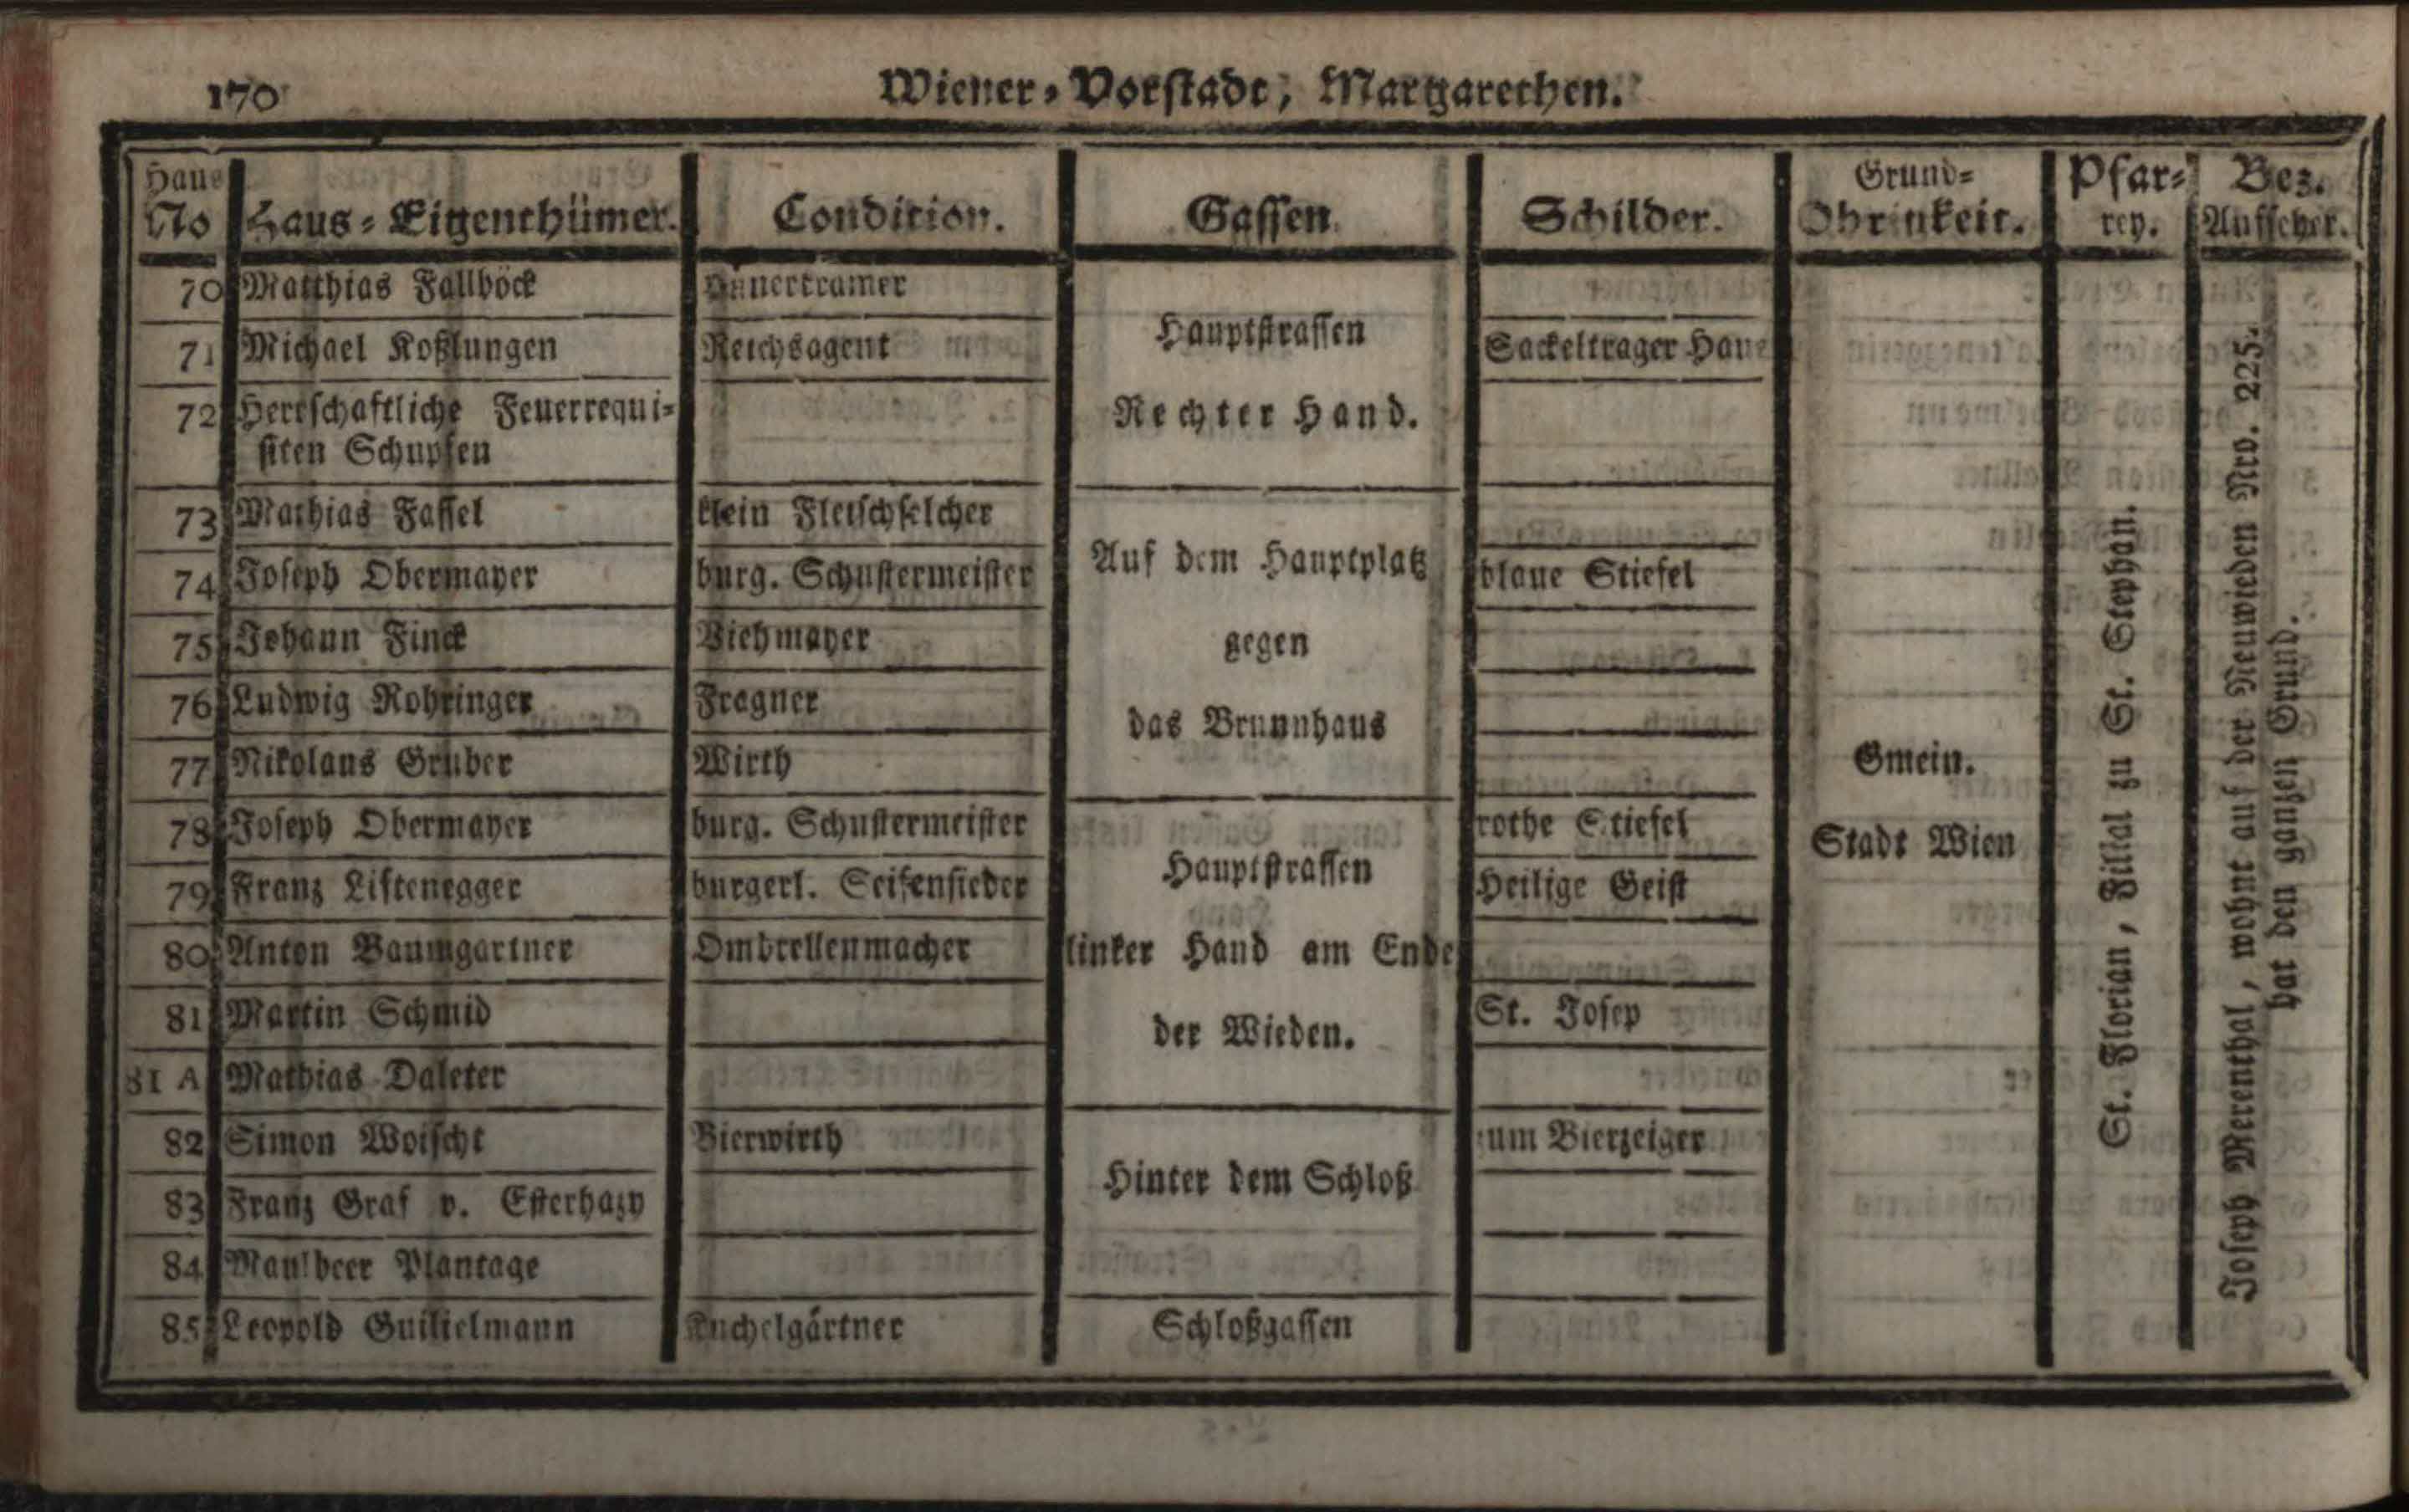 170
Wiener-Vorstadt, Margarethen.
Haus No
Haus-Eigenthümer.
Condition.
Gassen.
Schilder.
Grund-Obrigkeit.
Pfar-rey.
Bez. Aufseher.
70 Matthias Fallböck
71 Michael Koßlungen Reichsagent Sackeltrager Haus
72 Herrschaftliche Feuerrequi-
siten Schupfen
Hauptstrassen
Rechter Hand.
73 Mathias Fassel klein Fleischselcher
74 Joseph Obermayer burg. Schustermeister blaue Stiefel
75 Johann Finck Viehmayer
76 Ludwig Rohringer Fragner
77 Nikolaus Gruber Wirth
Auf dem Hauptplatz
gegen
das Brunnhaus
78 Joseph Obermayer burg. Schustermeister rothe Stiefel
79 Franz Liftenegger burgerl. Seifensieder Heilige Geist
80 Anton Baumgartner Ombrellenmacher
81 Martin Schmid St. Josep
81 A Mathias Daleter
Hauptstrassen
linker Hand am Ende
der Wieden.
82 Simon Woischt Bierwirth zum Bierzeiger
83 Franz Graf v. Esterhazy
84 Maulbeer Plantage
Hinter dem Schloß
85 Leopold Guilielmann Kuchelgärtner Schloßgassen
Gmein.
Stadt Wien
St. Florian, Filial zu St. Stephan.
Joseph Merenthal, wohnt auf der Neuwieden Nro. 225.
hat den ganzen Grund.